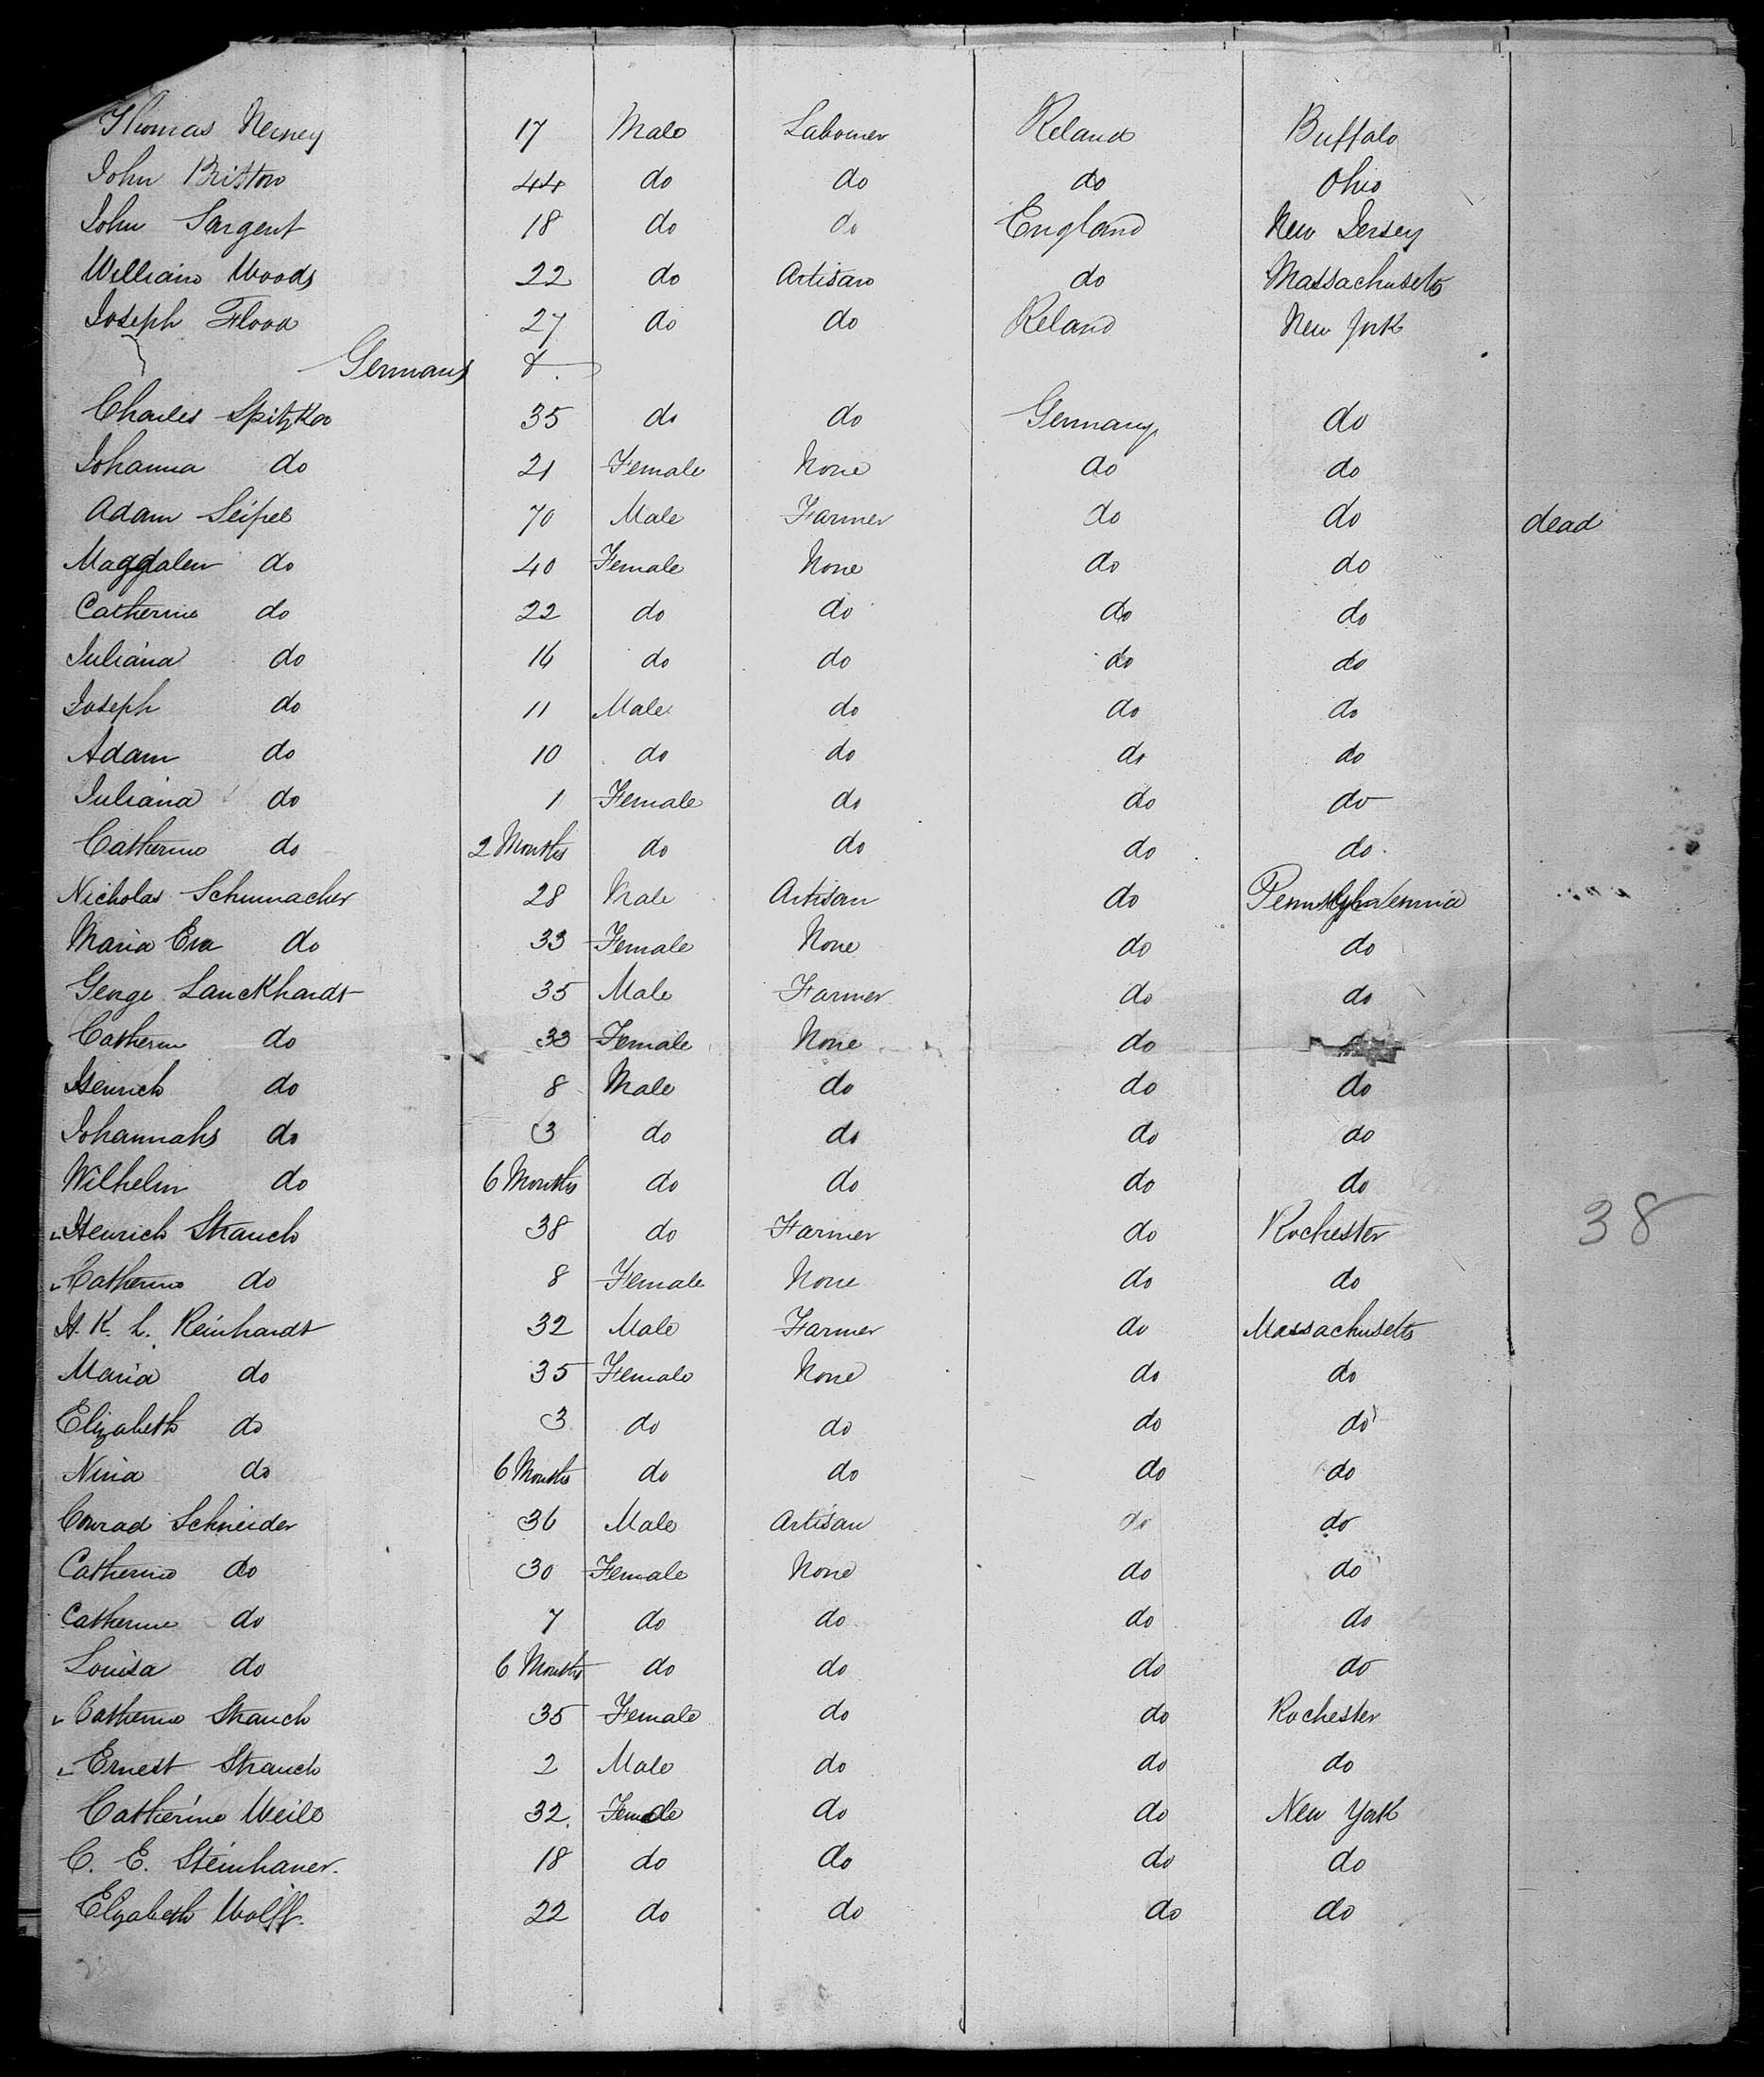 Thomas Nerney 17 Male Labourer Reland Buffalo
John Briston 44 do do do Ohio
John Sargent 18 do do England New Jersey
William Woods 22 do Artisan do Massachusets
Joseph Flood 27 do do Reland New York
Germans
Charles Spitzka 35 do do Germany do
Johanna do 21 Female None do do
Adam Seipel 70 Male Farmer do do dead
Magdalen do 40 Female None do do
Catherine do 22 do do do do
Juliana do 16 do do do do
Joseph do 11 Male do do do
Adam do 10 do do do do
Juliana do 1 Female do do do
Catherine do 2 Months do do do do
Nicholas Schumacher 28 Male Artisan do
Maria Eva do 33 Female None do do
George Lanckhardt 35 Male Farmer do do
Catherin do 33 Female None do
Henrich do 8 Male do do do
Johannahs do 3 do do do do
Wilhelm do 6 Months do do do do
Henrich Strauch 38 do Farmer do Rochester 38
Catherine do 8 Female None do do
H. K. L. Reinhardt 32 Male Farmer do Massachusetts
Maria do 35 Female None do do
Elizabeth do 3 do do do do
Nina do 6 Months do do do do
Conrad Schneider 36 Male Artisan do do
Catherine do 30 Female None do do
Catherine do 7 do do do do
Louisa do 6 Months do do do do
Catherine Strauch 35 Female do do Rochester
Ernest Strauch 2 Male do do do
Catherine Weile 32 Female do do New York
C. E. Steinhauer. 18 do do do do
Elyabeth Wolff. 22 do do do do